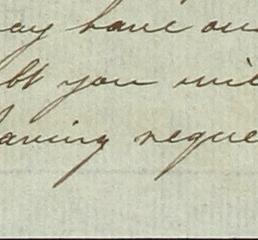 ay have ou
bt you wil
aving reque